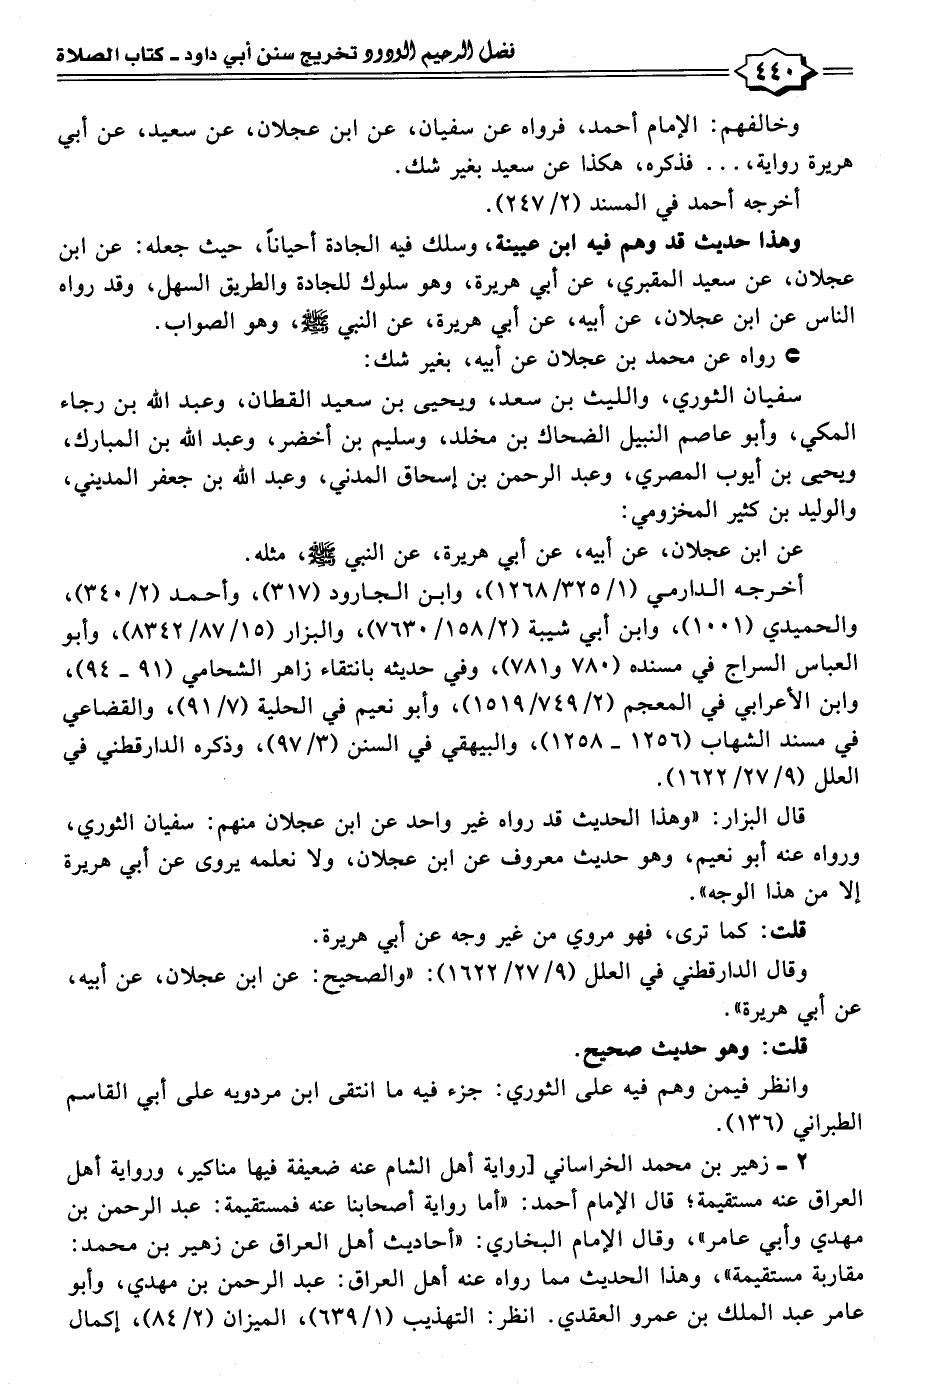 فضل الرحيم الودود تخريج سنن أبي داود ـ كتاب الصلاة
٤٤٠
وخالفهم: الإمام أحمد، فرواه عن سفيان، عن ابن عجلان، عن سعيد، عن أبي
هريرة رواية، ... فذكره، هكذا عن سعيد بغير شك.
أخرجه أحمد في المسند (٢٤٧/٢).
وهذا حديث قد وهم فيه ابن عيينة، وسلك فيه الجادة أحياناً، حيث جعله: عن ابن
عجلان، عن سعيد المقبري، عن أبي هريرة، وهو سلوك للجادة والطريق السهل، وقد رواه
الناس عن ابن عجلان، عن أبيه، عن أبي هريرة، عن النبي ﷺ، وهو الصواب.
رواه عن محمد بن عجلان عن أبيه، بغير شك:
سفيان الثوري، والليث بن سعد، ويحيى بن سعيد القطان، وعبد الله بن رجاء
المكي، وأبو عاصم النبيل الضحاك بن مخلد، وسليم بن أخضر، وعبد الله بن المبارك،
ويحيى بن أيوب المصري، وعبد الرحمن بن إسحاق المدني، وعبد الله بن جعفر المديني،
والوليد بن كثير المخزومي:
عن ابن عجلان، عن أبيه، عن أبي هريرة، عن النبي ﷺ، مثله.
أخرجه الدارمي (١٢٦٨/٣٢٥/١)، وابن الجارود (٣١٧)، وأحمد (٣٤٠/٢)،
والحميدي (١٠٠١)، وابن أبي شيبة (٧٦٣٠/١٥٨/٢)، والبزار (٨٣٤٢/٨٧/١٥)، وأبو
العباس السراج في مسنده (٧٨٠ و٧٨١)، وفي حديثه بانتقاء زاهر الشحامي (٩١ ـ ٩٤)،
وابن الأعرابي في المعجم (١٥١٩/٧٤٩/٢)، وأبو نعيم في الحلية (٩١/٧)، والقضاعي
في مسند الشهاب (١٢٥٦ ـ ١٢٥٨)، والبيهقي في السنن (٩٧/٣)، وذكره الدارقطني في
العلل (١٦٢٢/٢٧/٩).
قال البزار: «وهذا الحديث قد رواه غير واحد عن ابن عجلان منهم: سفيان الثوري،
ورواه عنه أبو نعيم، وهو حديث معروف عن ابن عجلان، ولا نعلمه يروى عن أبي هريرة
إلا من هذا الوجه».
قلت: كما ترى، فهو مروي من غير وجه عن أبي هريرة.
وقال الدارقطني في العلل (١٦٢٢/٢٧/٩): «والصحيح: عن ابن عجلان، عن أبيه،
عن أبي هريرة».
قلت: وهو حديث صحيح.
وانظر فيمن وهم فيه على الثوري: جزء فيه ما انتقى ابن مردويه على أبي القاسم
الطبراني (١٣٦).
٢ ـ زهير بن محمد الخراساني [رواية أهل الشام عنه ضعيفة فيها مناكير، ورواية أهل
العراق عنه مستقيمة؛ قال الإمام أحمد: «أما رواية أصحابنا عنه فمستقيمة: عبد الرحمن بن
مهدي وأبي عامر»، وقال الإمام البخاري: «أحاديث أهل العراق عن زهير بن محمد:
مقاربة مستقيمة»، وهذا الحديث مما رواه عنه أهل العراق: عبد الرحمن بن مهدي، وأبو
عامر عبد الملك بن عمرو العقدي. انظر: التهذيب (٦٣٩/١)، الميزان (٨٤/٢)، إكمال